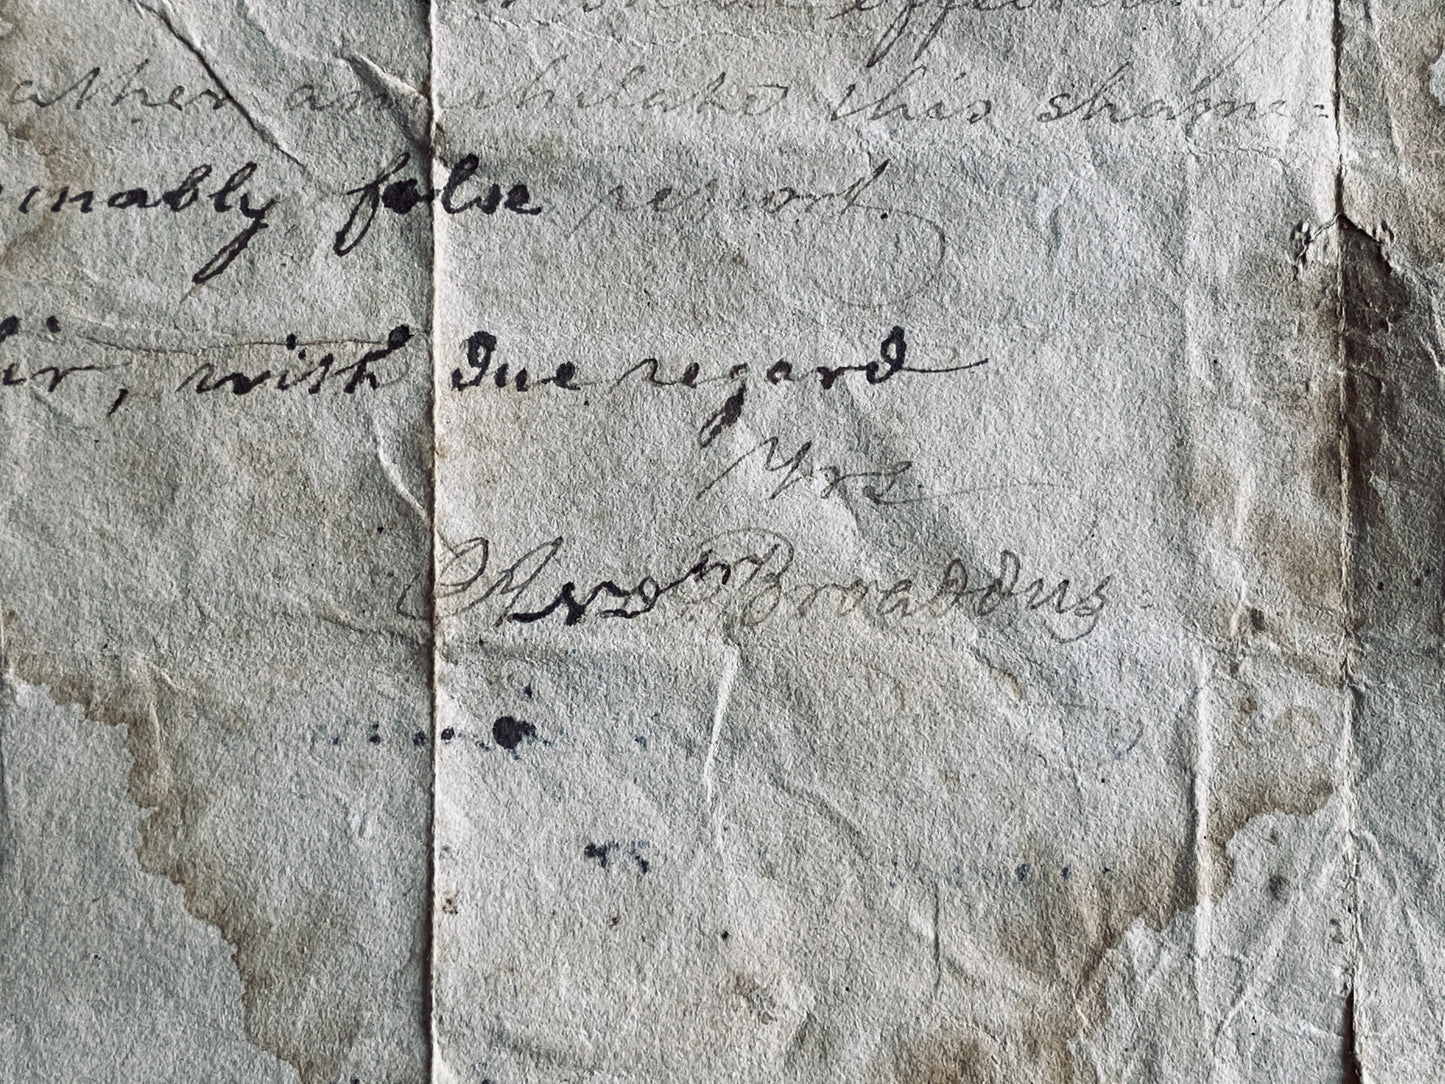 effectually
ather annihilate this shame=
mably false report
Sir, with due regard
Yrs.
Andw Broaddus